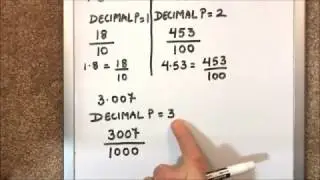 DECIMAL P = 1
18
10
1.8 = 18
10
DECIMAL P = 2
453
100
4.53 = 453
100
3.007
DECIMAL P = 3
3007
1000